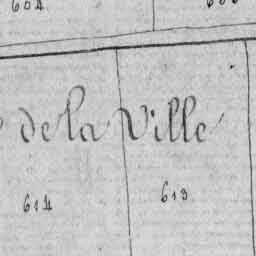 604
de la Ville
614 613